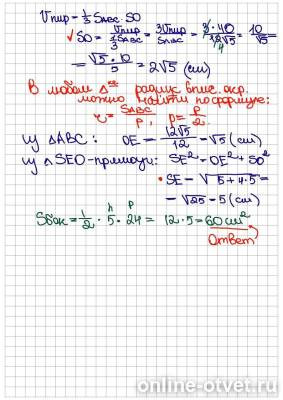 Vпир = 1/3 Sавс · SO
√ SO = Vпир / (1/3 Sавс) = 3Vпир / Sавс = 3 · 40 / 12√5 = 10 / √5 =
= √5 · 10 / 5 = 2√5 (см)
В любом Δке радиус впис. окр.
можно найти по формуле:
r = Sавс / p, p = P / 2
из ΔABC: OE = 12√5 / 12 = √5 (см)
из ΔSEO - прямоуг: SE² = OE² + SO²
SE = √5 + 4·5 =
= √25 = 5 (см)
Sбок = 1/2 · 5 · 24 = 12 · 5 = 60 см²
Ответ
online-otvet.ru